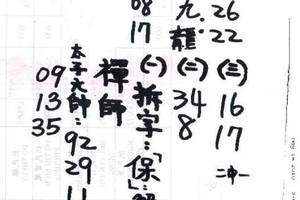 26
22
(三)
16
17
二中一
九龍:
(二)
34
8
08
17
(一)
拆字:「保」:
禪師
太子大師:92
29
11
09
13
35